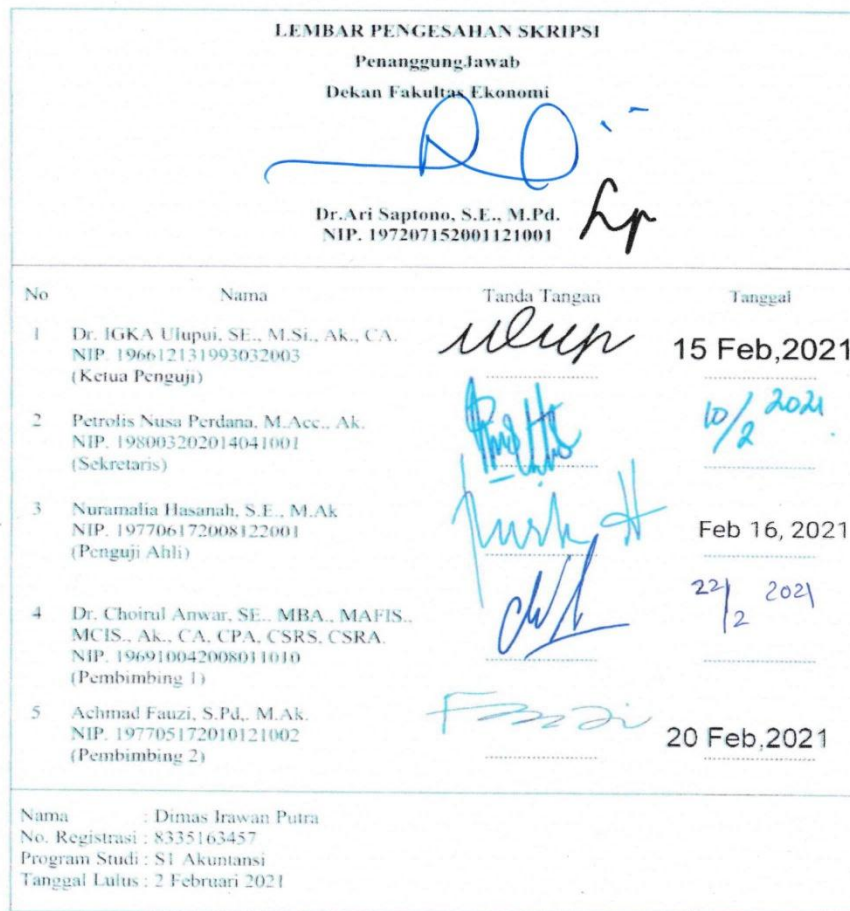 LEMBAR PENGESAHAN SKRIPSI
PenanggungJawab
Dekan Fakultas Ekonomi
Dr.Ari Saptono, S.E., M.Pd.
NIP. 197207152001121001
No Nama Tanda Tangan Tanggal
1 Dr. IGKA Ulupui, SE., M.Si., Ak., CA.
NIP. 196612131993032003
(Ketua Penguji)
15 Feb,2021
2 Petrolis Nusa Perdana, M.Acc., Ak.
NIP. 198003202014041001
(Sekretaris)
10/2 2021
3 Nuramalia Hasanah, S.E., M.Ak
NIP. 197706172008122001
(Penguji Ahli)
Feb 16, 2021
4 Dr. Choirul Anwar, SE., MBA., MAFIS.,
MCIS., Ak., CA, CPA, CSRS, CSRA.
NIP. 196910042008011010
(Pembimbing 1)
22/2 2021
5 Achmad Fauzi, S.Pd,. M.Ak.
NIP. 197705172010121002
(Pembimbing 2)
20 Feb,2021
Nama : Dimas Irawan Putra
No. Registrasi : 8335163457
Program Studi : S1 Akuntansi
Tanggal Lulus : 2 Februari 2021